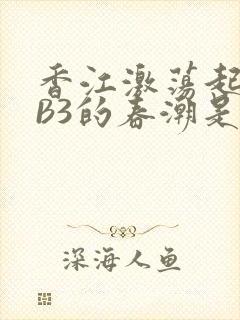 香江激荡起
B3的春潮是
深海人鱼